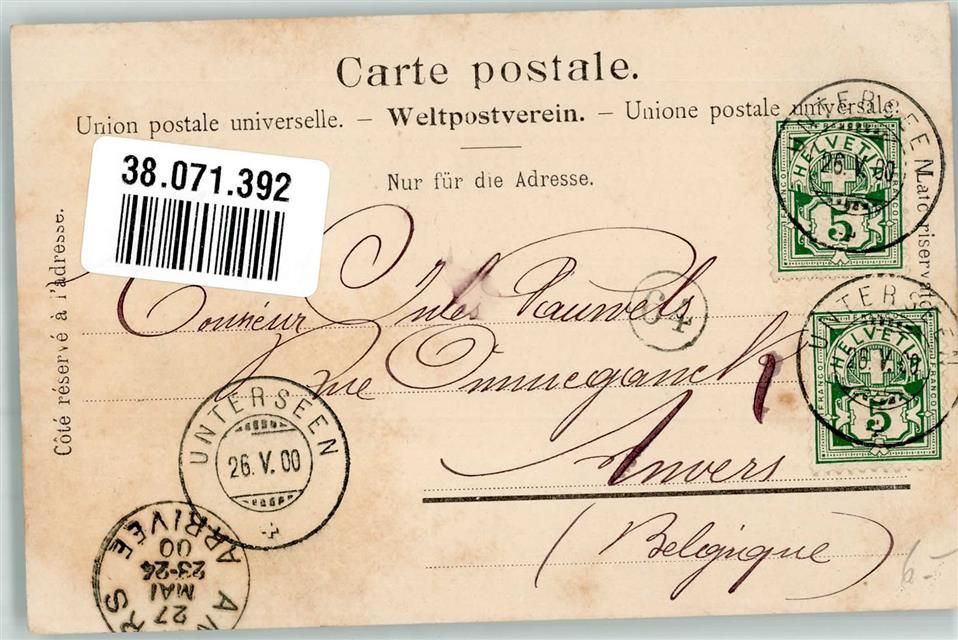 Carte postale.
Union postale universelle. — Weltpostverein. — Unione postale universale.
Nur für die Adresse.
38.071.392
Côté réservé à l'adresse.
Lato riservato
UNTERSEEN
26.V.00
HELVETIA
FRANCO
FRANCO
5
UNTERSEEN
26.V.00
HELVETIA
FRANCO
FRANCO
5
64
Monsieur Jules Pauwels
Rue Ommeganck 9
Anvers
(Belgique)
UNTERSEEN
26.V.00
ANVERS
27
MAI
23-24
00
ARRIVÉE
6.-